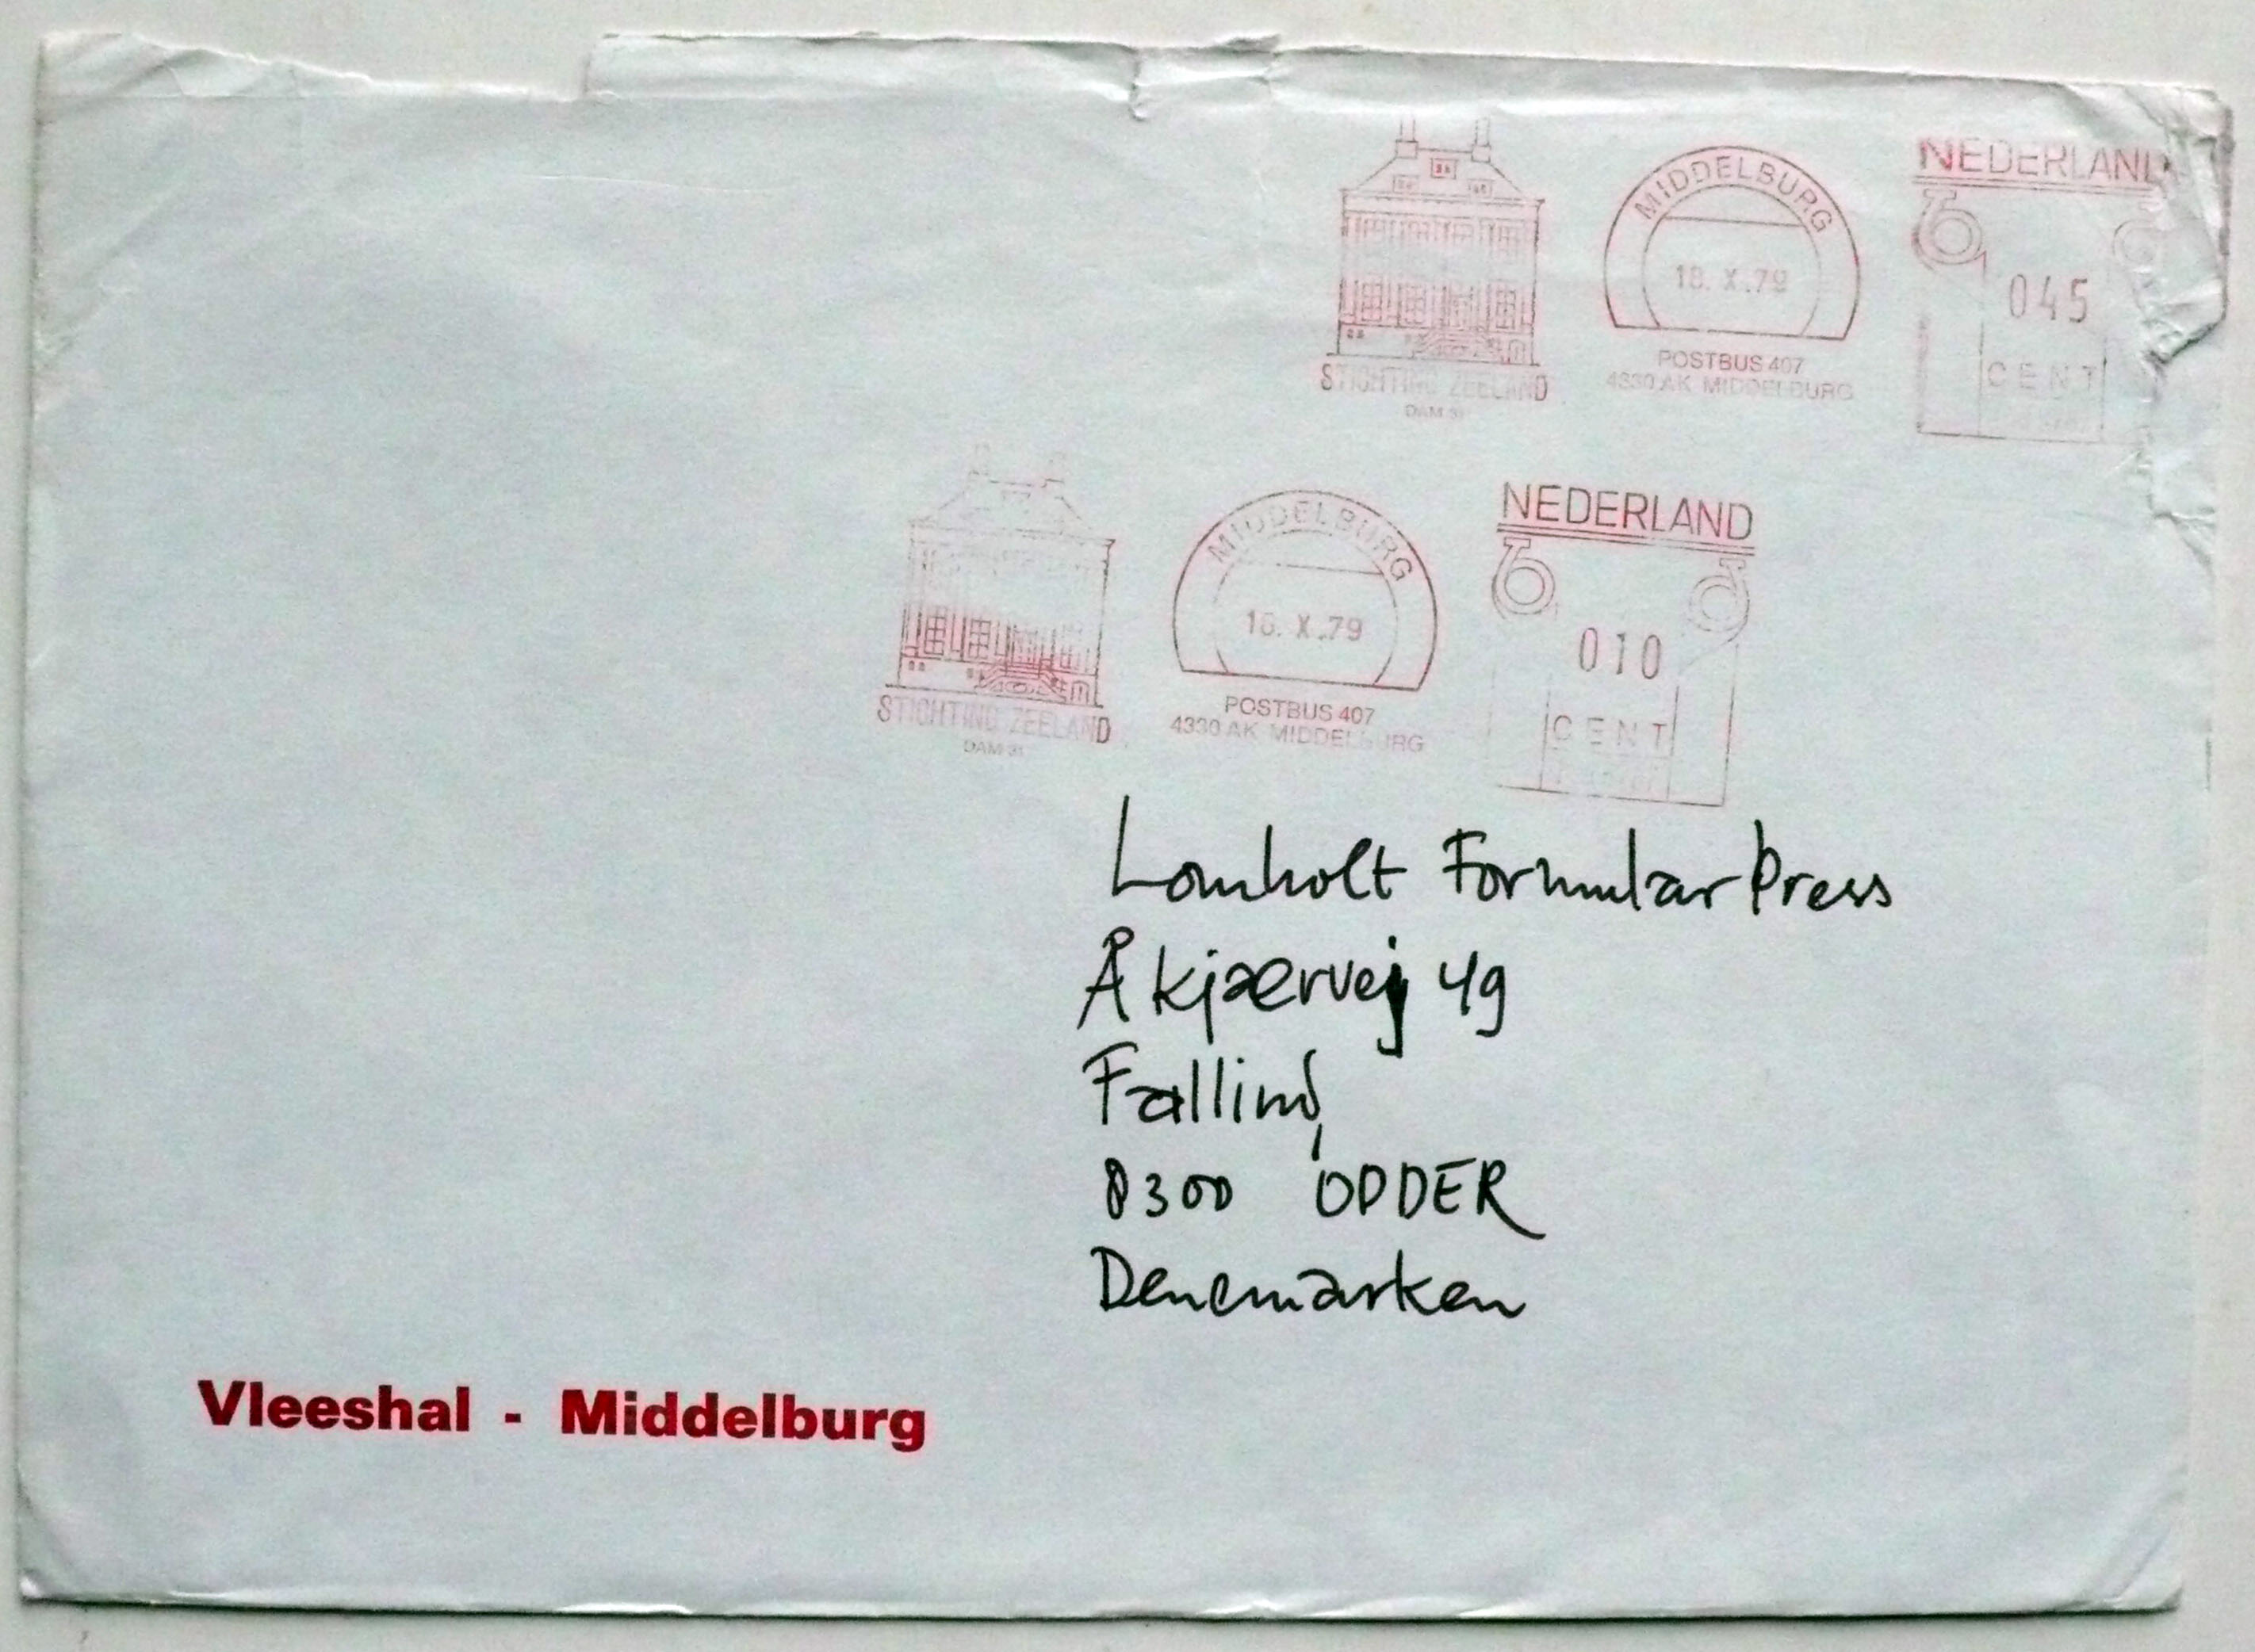 NEDERLAND
MIDDELBURG
18. X .79
045
CENT
POSTBUS 407
4330 AK MIDDELBURG
STICHTING ZEELAND
DAM 31
NEDERLAND
MIDDELBURG
X .79
010
CENT
POSTBUS 407
4330 AK MIDDELBURG
STICHTING ZEELAND
DAM 31
Lomholt Formular Press
Åkjærvej 49
Falling,
8300 ODDER
Denemarken
Vleeshal - Middelburg